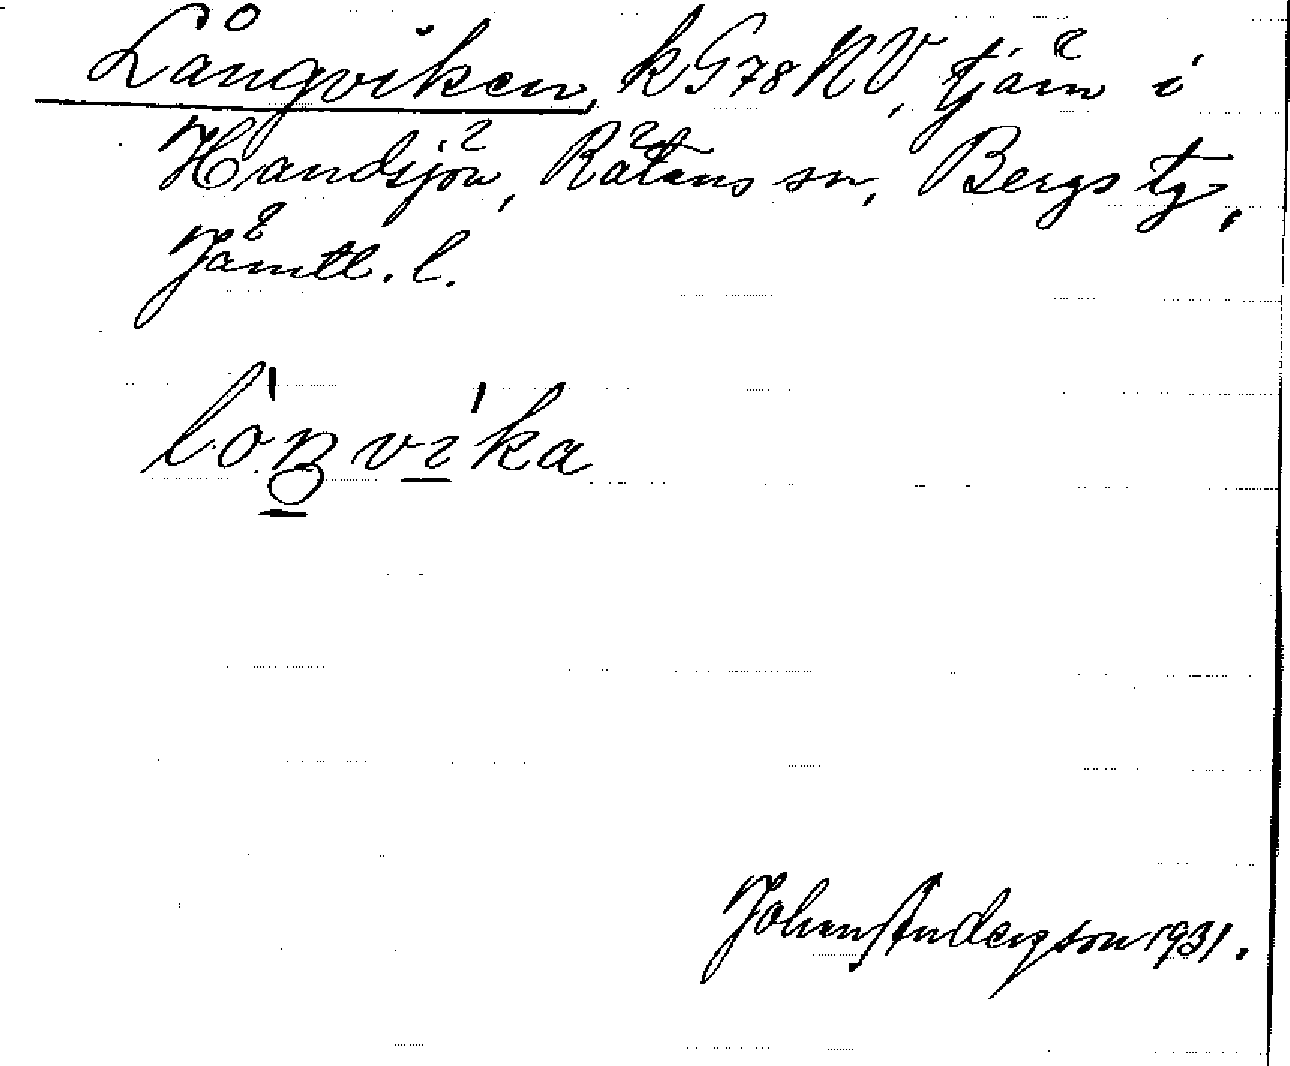 Långviken, k G78NV, tjärn i
Handsjön, Rätans sn, Bergs tg,
Jämtl. l.
Johan Anderson 1931.